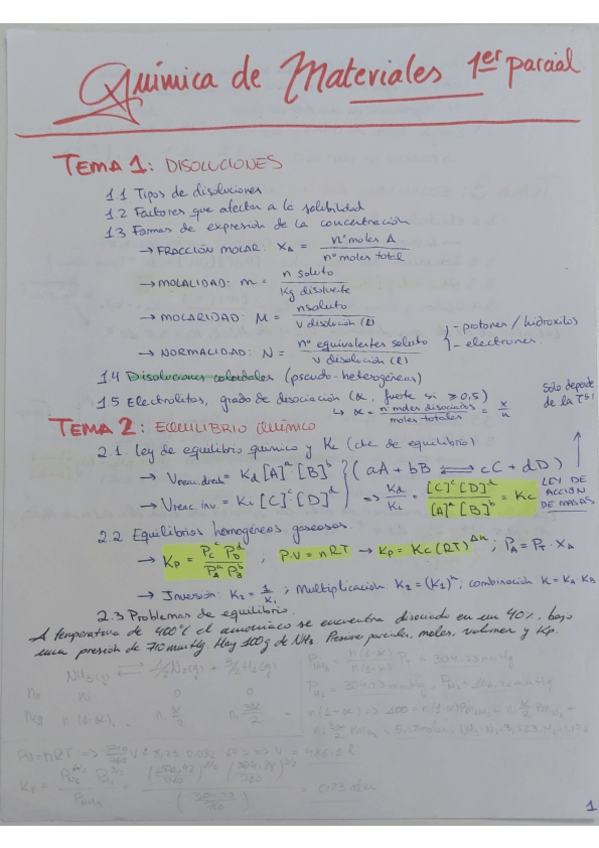 Química de Materiales 1er parcial
TEMA 1: DISOLUCIONES
1.1 Tipos de disoluciones
1.2 Factores que afectan a la solubilidad
1.3 Formas de expresión de la concentración
→ FRACCIÓN MOLAR: XA = nº moles A / nº moles total
→ MOLALIDAD: m = n soluto / Kg disolvente
→ MOLARIDAD: M = n soluto / V disolución (l)
→ NORMALIDAD: N = nº equivalentes soluto / V disolución (l) } - protones / hidroxilos - electrones
1.4 Disoluciones coloidales (pseudo-heterogéneas)
1.5 Electrolitos, grado de disociación (α, fuerte si ≥ 0,5)
↳ α = nº moles disociados / moles totales = x / n
Solo depende de la Tª!
TEMA 2: EQUILIBRIO QUÍMICO
2.1. Ley de equilibrio químico y Kc (cte de equilibrio)
→ Vreac. direct = Kd [A]^a [B]^b } (aA + bB ⇌ cC + dD)
→ Vreac inv = Ki [C]^c [D]^d ⇒ Kd / Ki = [C]^c [D]^d / [A]^a [B]^b = Kc
LEY DE ACCIÓN DE MASAS
2.2 Equilibrios homogéneos gaseosos.
→ Kp = Pc^c PD^d / PA^a PB^b ; P.V = nRT → Kp = Kc (RT)^Δn ; PA = PT . XA
→ Inversión: K2 = 1 / K1 ; Multiplicación: K2 = (K1)^n ; combinación K = KA . KB
2.3 Problemas de equilibrio.
A temperatura de 400ºC el amoniaco se encuentra disociado en un 40%, bajo
una presión de 710 mmHg. Hay 100g de NH3. Presiones parciales, moles, volumen y Kp.
NH3(g) ⇌ 1/2 N2(g) + 3/2 H2(g)
n0 ni 0 0
neq n(1-α) n. α/2 n. 3α/2
1